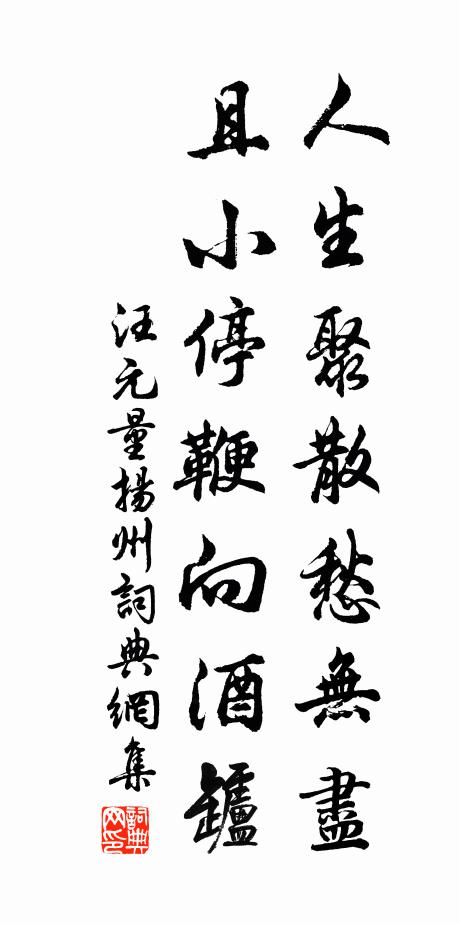 人生聚散愁無盡
且小停鞭向酒罏
汪元量揚州詞典網集
詞典网印